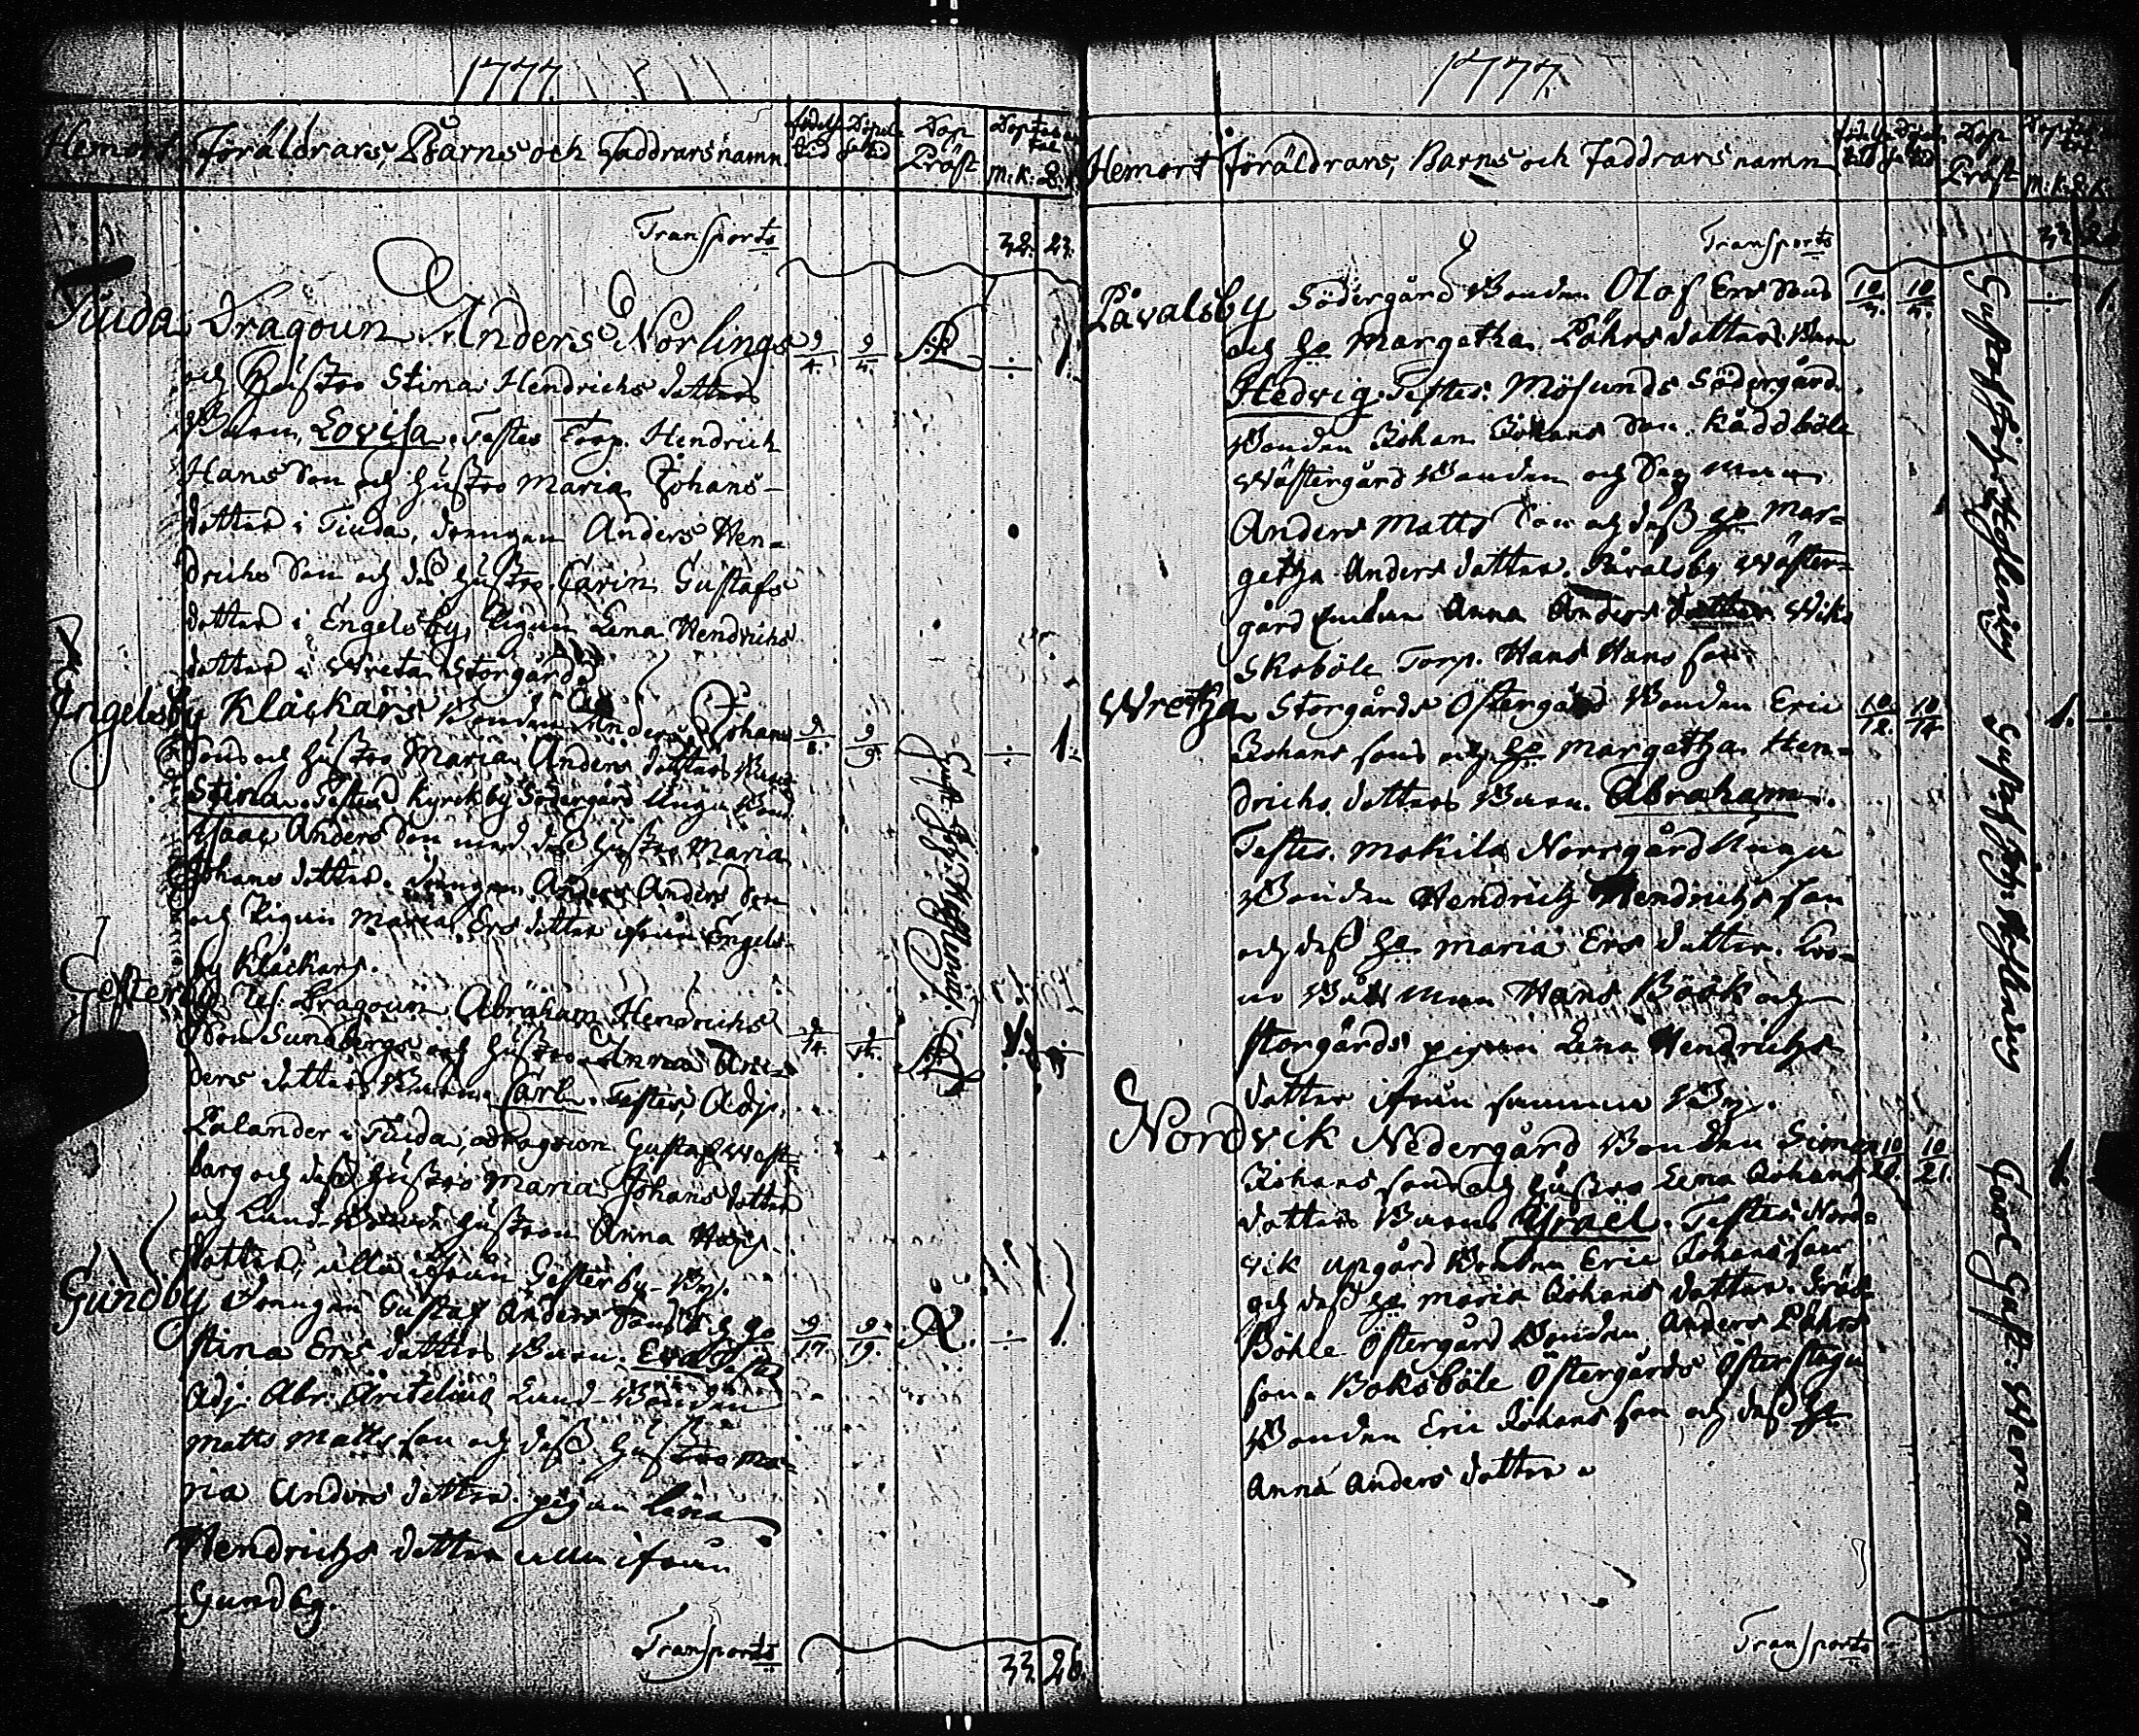 1777.
Hemort Föräldrars, Barns och Faddrars namn födelse tid Döpelse tid Dop Präst Dopta antal
M: K: Q: K:
Transport 32. 23.
Tiuda Dragoun Anders Norlings 9/4. 9/4. ÷ 1.
och Hustro Stina Hendrichs dotters
Barn, Lovisa. Testes Torp. Hendrich
Hans Son och Hustro Maria Johans-
dotter i Tiuda, drengen Anders Hen=
drichs Son och des Hustro Carin Gustafs
dotter i Engelsby, Pigan Lena Hendrichs
dotter i Wreta Storgård.
Engelsby Klåckars Bonden Anders Johans 9/8. 9/9. ÷ 1.
Sons och Hustro Maria Anders dotters Barn
Stina. Testes Kyrckby Södergård Unga Bond
Isaac Anders Son med des Hustro Maria
Johans dotter. drengen Anders Anders Son
och Pigan Maria Ers dotter ifrån Engels-
by Klåckars.
Gust: Joh: Hoflenius
Gesterby Res. Dragoun Abraham Hendrichs 9/14. 1. ÷
Son Sundbergs och Hustro Anna An=
ders dotters Barn Carl. Testes, Adj.
Palander i Tiuda, Dragoun Gustaf West=
barg och dess Hustro Maria Johans dotter
och Land-Bonde Hustron Anna
dotter, alla ifrån Gesterby-By.
Gundby Drengen Gustaf Anders Sons och H:o 9/17. 9/19. ÷ 1.
Stina Ers dotters Barn. Eva. Testes
Adj: Abr: Land-Bonden
Matts Matts son och dess Hustro Ma=
ria Anders dotter. pigan Lena
Hendrichs dotter alla ifrån
Gundby.
Transport 33. 26.
1777.
Hemort Föräldrars, Barns och Faddrars namn födelse tid Döpelse tid Dop Präst Dopta antal
M: K: Q: K:
Transport 33. 26
Påvalsby Södergård Bonden Olof Ers Sons 10/4. 10/4. ÷ 1.
och H:o Margetha Påhrs dotters Barn
Hedvig. Testes: Mösunds Södergård
Bonden Johan Johans Son. Råddböle
Wästergård Bonden och
Anders Matts Son och dess H:o Mar=
getha Anders dotter. Påvalsby Wäster=
gård Enkan Anna Anders dotter Wiks
Skoböle Torp. Hans Hans son.
Wretha Storgårds Östergård Bonden Eric 10/12. 10/14. 1. ÷
Johans sons och H:o Margetha Hen=
drichs dotters Barn. Abraham.
Testes. Mokila Norrgård Unga
Bonden Hendrich Hendrichs son
och dess H:o Maria Ers dotter. Cro=
no Båtsman Hans Böök och
Storgårds pigan Lena Hendrichs
dotter ifrån samma By.
Nordvik Nedergård Bonden Simon 10/20. 10/21. 1.
Johans sons och Hustro Lena Johans
dotters Barn Israel. Testes Nord=
vik Upgård Bonden Eric Johans son
och dess H:o Maria Johans dotter.
Böhle Östergård Bonden Anders Påhrs
son. Boksböle Östergårds
Bonden Eric Johans son och dess H:o
Anna Anders dotter.
Gustaf Joh: Hoflenius Gustaf Joh: Hoflenius Carl Gust: Weman
Transport